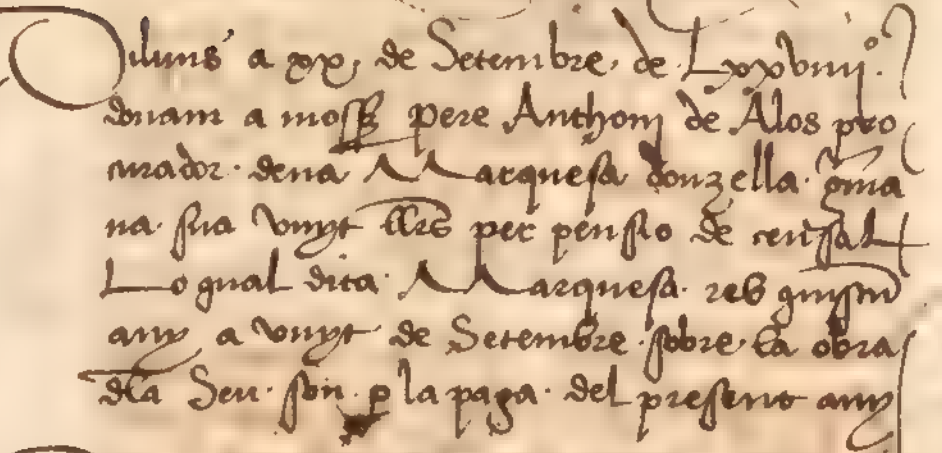 Diluns a xx, de Setembre, de Lxxviiii.º
donam a moss pere Anthoni de Alos pro
curador · dena Marquesa donzella · gma
na · sua vuyt llrs per pensio de censal
Lo qual dita · Marquesa · reb quiscu
any a vuyt de Setembre · sobre · la obra
dla Seu · son · p la paga · del present any